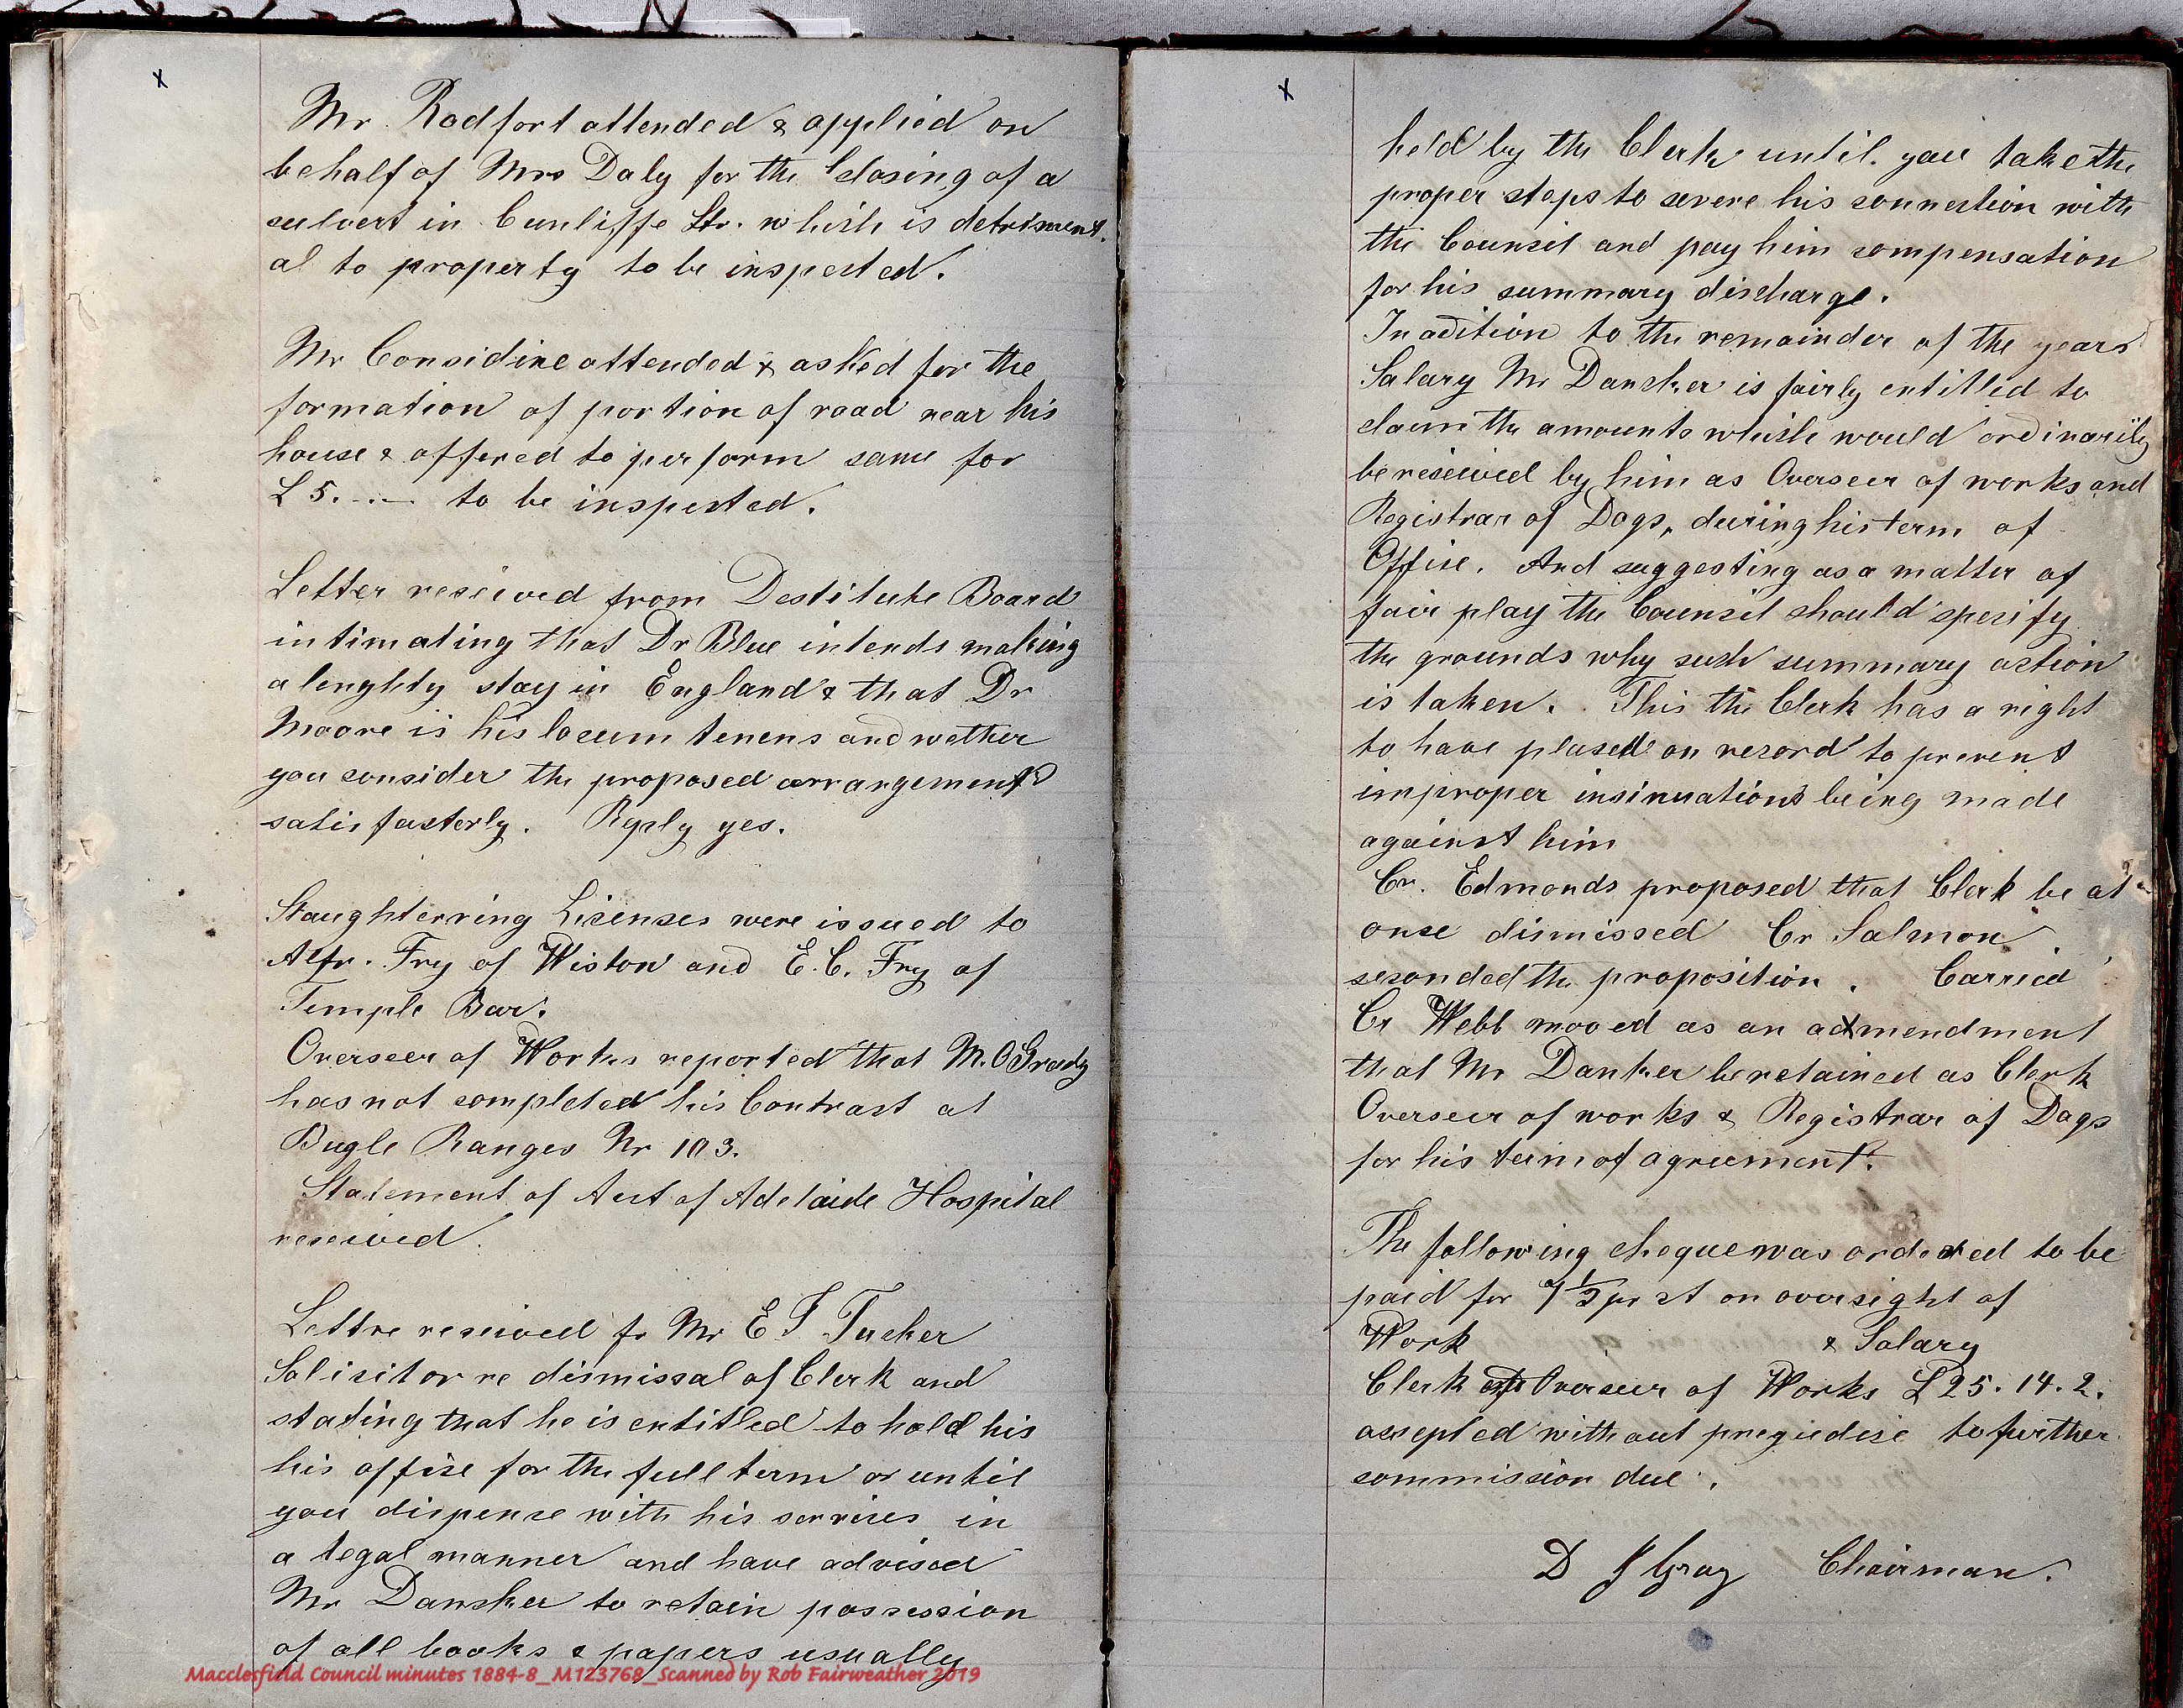 x
Mr Radfort attended & applied on
behalf of Mrs Daly for the Closing of a
culvert in Cunliffe Str. which is detriment.
al to property to be inspected.
Mr Considine attended & asked for the
formation of portion of road near his
house & offered to perform same for
£5.-.- to be inspected.
Letter received from Destitute Board
intimating that Dr Blue intends making
a lenghty stay in England & that Dr
Moore is his locum tenens and wether
you consider the proposed arrangement
satisfacterly. Reply yes.
Slaughterring Licenses were issued to
Alfr. Fry of Wistow and E. C. Fry of
Temple Bar.
Overseer of Works reported that M. O'Grady
has not completed his Contract at
Bugle Ranges Nr 103.
Statement of Acct of Adelaide Hospital
received.
Lettre received fr Mr E J Tucker
Solicitor re dismissal of Clerk and
stating that he is entitled to hold his
his office for the full term or until
you dispense with his services in
a legal manner and have advised
Mr Dancker to retain possession
of all books & papers usually
x
held by the Clerk until. you take the
proper steps to severe his connection with
the Council and pay him compensation
for his summary discharge.
In adition to the remainder of the years
Salary Mr Dancker is fairly entitled to
claim the amounts which would ordinarily
be received by him as Overseer of works and
Registrar of Dogs, during his term of
Office. And suggesting as a matter of
fair play the Council should specify
the grounds why such summary action
is taken. This the Clerk has a right
to have placed on record to prevent
improper insinuations being made
against him
Cr. Edmonds proposed that Clerk be at
once dismissed Cr Salmon
seconded the proposition. Carried
Cr Webb mooved as an admendment
that Mr Danker be retained as Clerk
Overseer of works & Registrar of Dogs
for his term of agreement.
The following cheque was ordered to be
paid for 7½ pr ct on oversight of
Work & Salary
Clerk Overseer of Works £25.14.2.
accepted without pregiudice to further
commission due.
D J Gray Chairman.
Macclesfield Council minutes 1884-8_M123768_Scanned by Rob Fairweather 2019